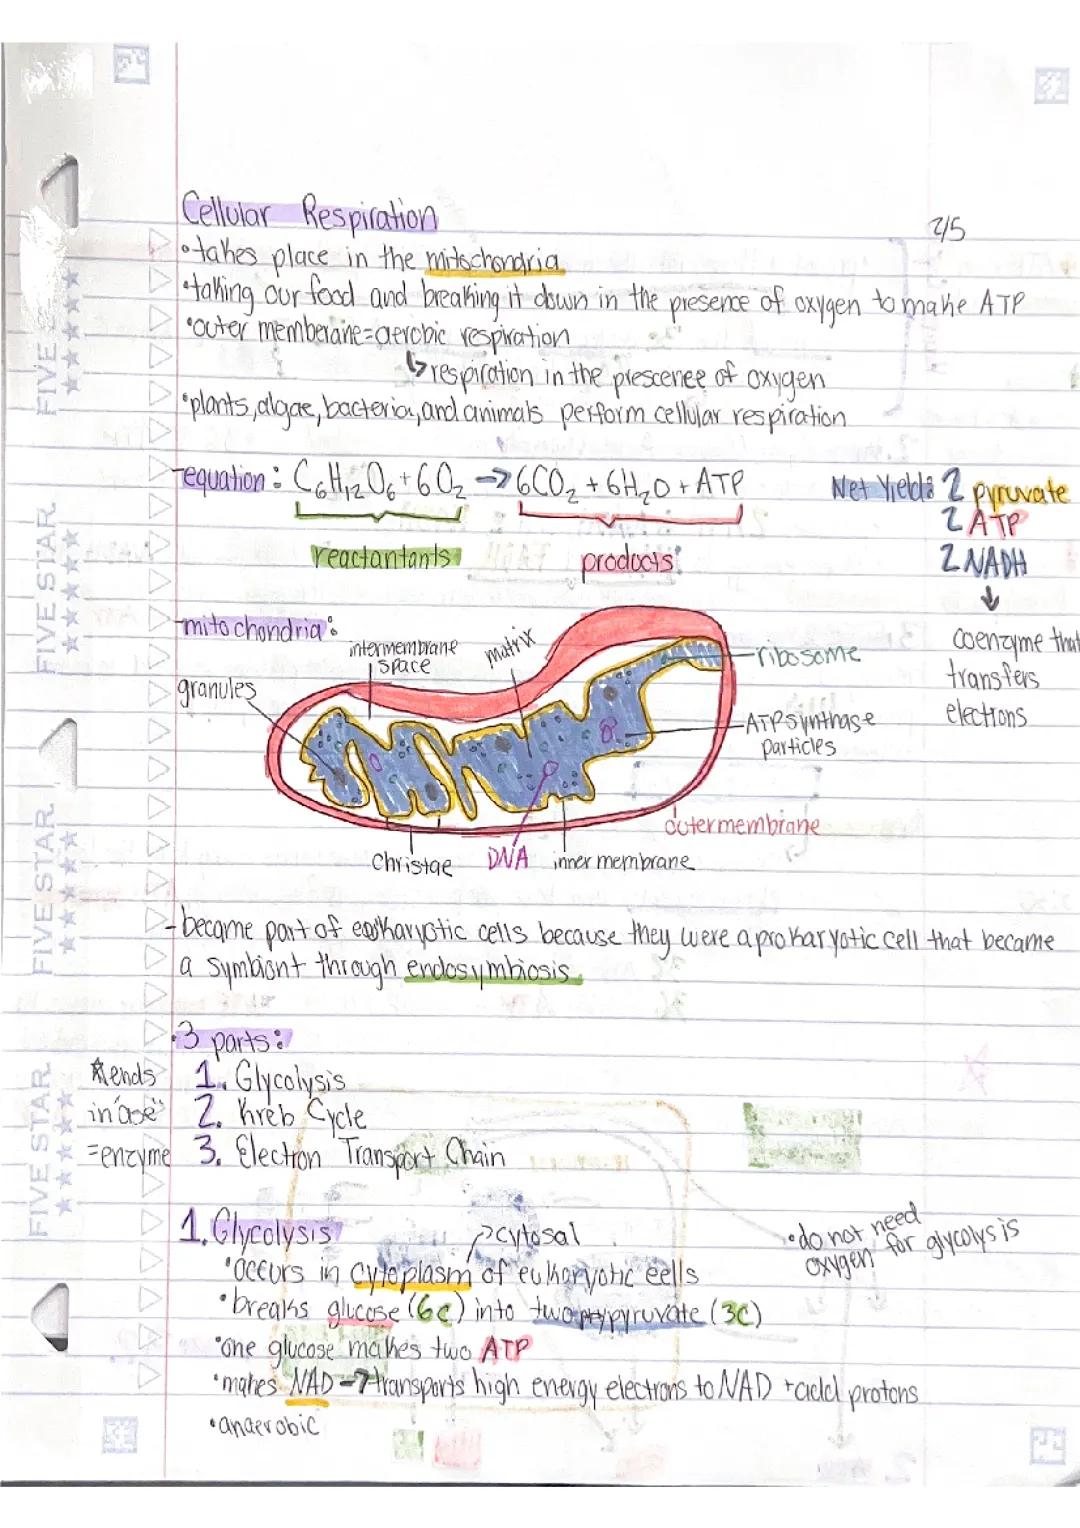 Cellular Respiration
2/5
•takes place in the mitochondria
•taking our food and breaking it down in the presence of oxygen to make ATP
•outer memberane=aerobic respiration
↳respiration in the prescence of oxygen
•plants, algae, bacteria, and animals perform cellular respiration
-equation: C6H12O6 + 6O2 → 6CO2 + 6H2O + ATP
reactantants
products:
Net Yield: 2 pyruvate
2 ATP
2 NADH
↓
coenzyme that
transfers
electrons
-mitochondria:
intermembrane
space
matrix
granules
ribosome
ATP synthase
particles
outermembrane
Christae
DNA
inner membrane
-became part of eukaryotic cells because they were a prokaryotic cell that became
a symbiont through endosymbiosis
•3 parts:
1. Glycolysis
2. Kreb Cycle
3. Electron Transport Chain
*ends
in "ase"
=enzyme
1. Glycolysis
→cytosal
•occurs in cytoplasm of eukaryotic cells
•do not need
oxygen for glycolysis
•breaks glucose (6c) into two pyruvate (3C)
•one glucose makes two ATP
•makes NAD → transports high energy electrons to NAD + add protons
•anaerobic
FIVE STAR
FIVE STAR
FIVE STAR
FIVE